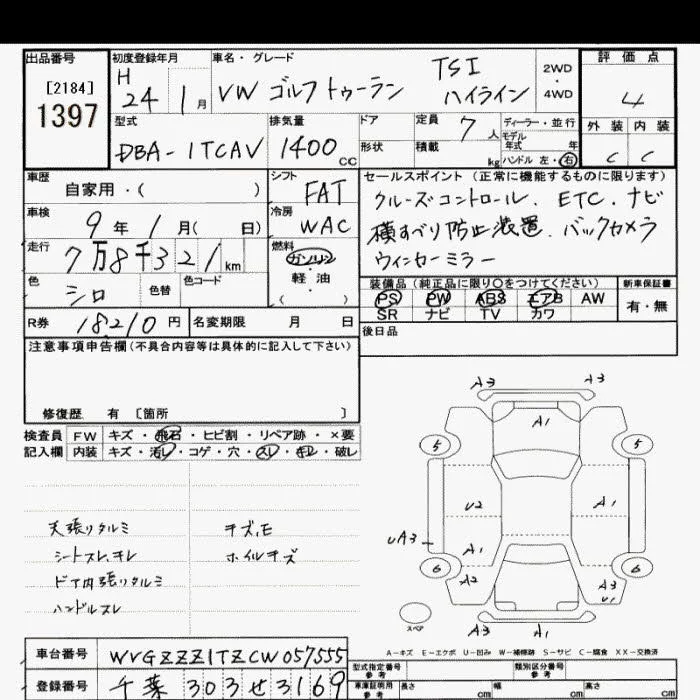 出品番号
[2184]
1397
初度登録年月
H
24 1月
車名・グレード
VW ゴルフトゥーラン TSI
ハイライン
2WD
・
4WD
評価点
4
外装 内装
C C
型式
DBA-1TCAV
排気量
1400 CC
ドア
形状
定員 7人
積載 kg
ディーラー・並行
モデル
年式 年
ハンドル 左・右
車歴
自家用・( )
シフト
FAT
車検
9年1月( 日)
冷房
WAC
走行
7万8千321km
燃料
ガソリン
・
軽油
( )
色
シロ
色替
色コード
R券 18210円
名変期限 月 日
セールスポイント (正常に機能するものに限ります)
クルーズコントロール. ETC. ナビ
横すべり防止装置. バックカメラ
ウィンカーミラー
装備品 (純正品に限り○をつけてください)
PS PW ABS エアB AW
SR ナビ TV カワ
新車保証書
有・無
後日品
注意事項申告欄 (不具合内容等は具体的に記入して下さい)
修復歴 有 〔箇所 〕
検査員 FW キズ・飛石・ヒビ割・リペア跡・×要
記入欄 内装 キズ・汚レ・コゲ・穴・スレ・キレ・破レ
天張りタルミ
シートスレ、キレ
ドア内張りタルミ
ハンドルスレ
キズ.モ
ホイルキズ
A3 A3
A1
5 5
U2 A1
UA3
A1
6 6
A2 A3
U1
スペア
A3 A1
A-キズ E-エクボ U-凹み W-補修跡 S-サビ C-腐食 XX-交換済
車台番号 WVGZZZ1TZCW057555
登録番号 千葉 303 せ 3169
型式指定番号
参考
類別区分番号
参考
車庫証明用
参考
長さ cm 幅 cm 高さ cm